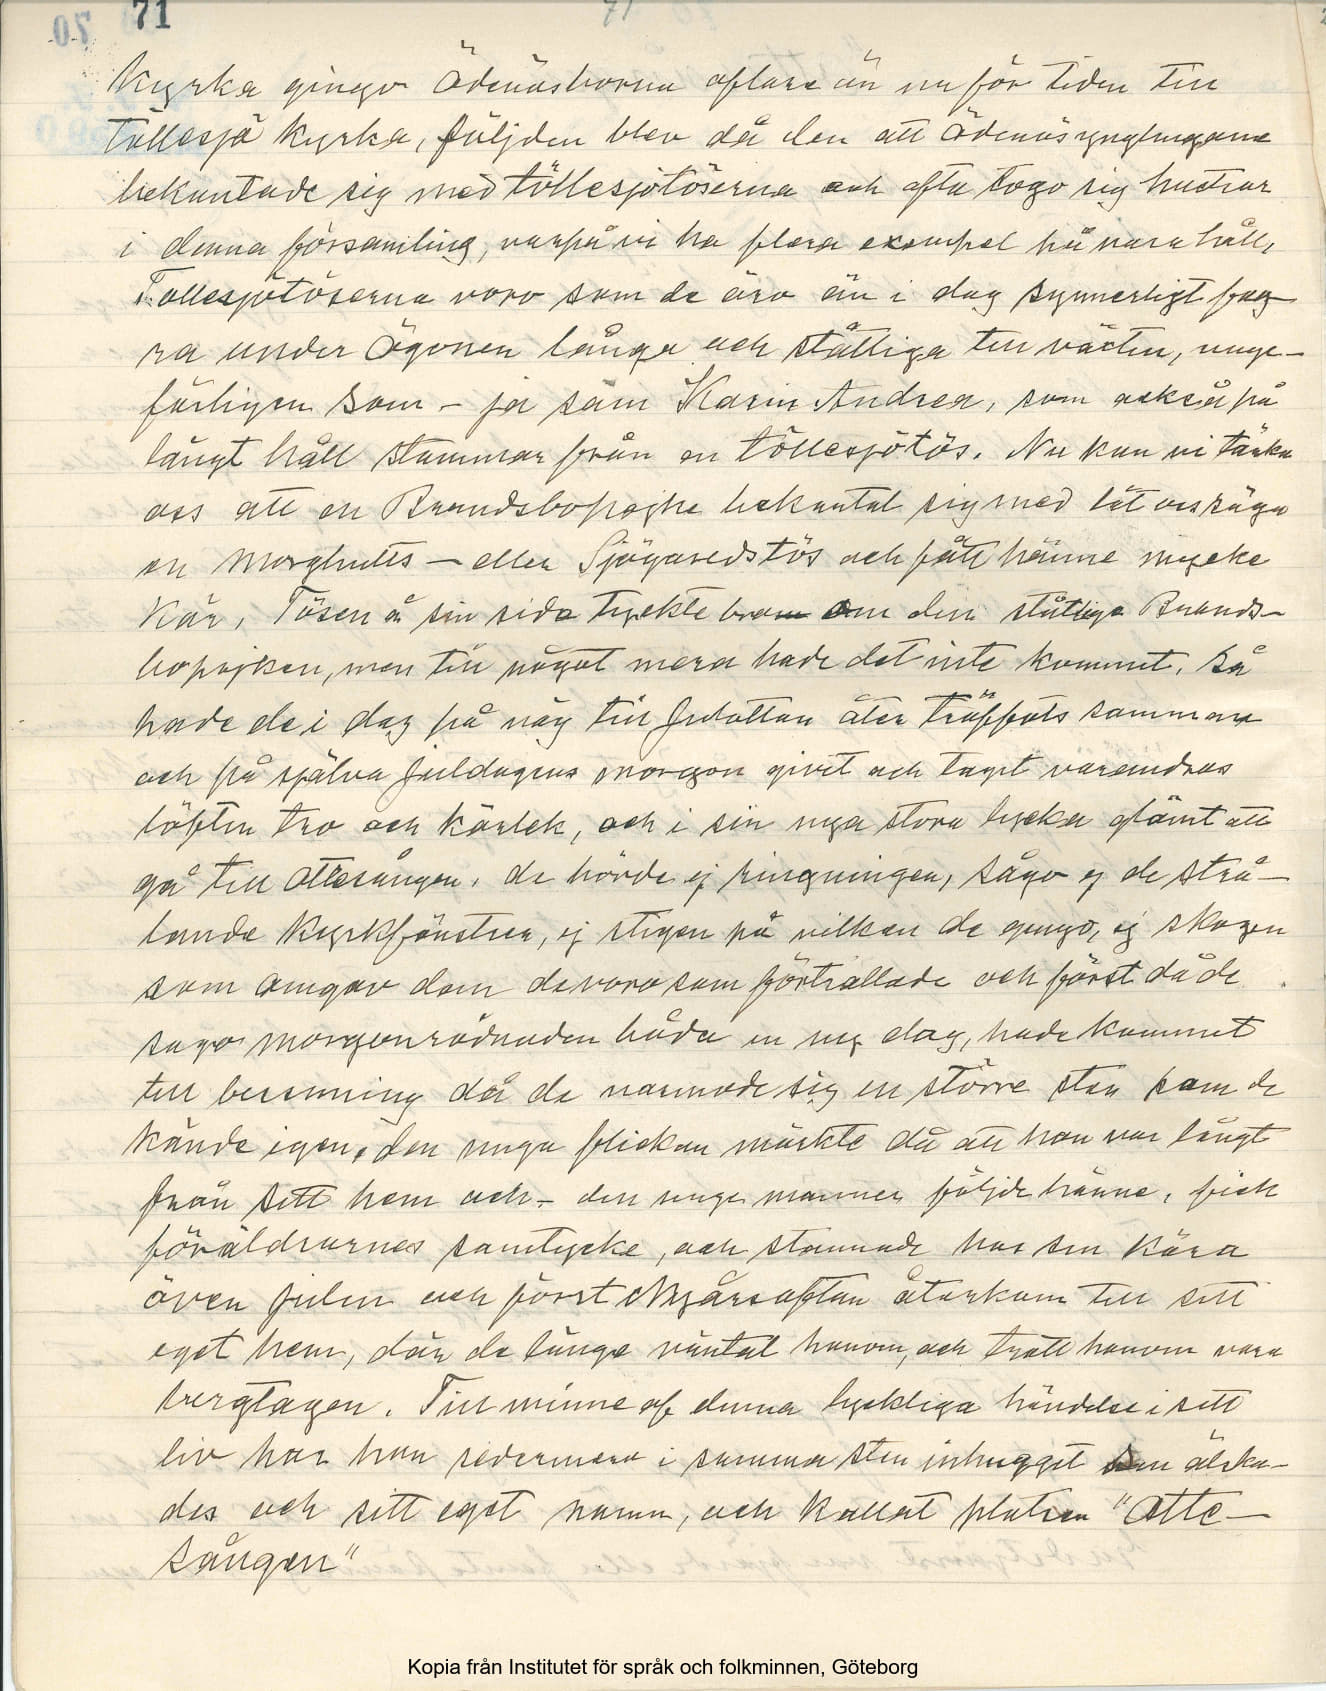 71
kyrka gingo Ödenäsborna oftare än nu för tiden till
Töllesjö kyrka, följden blev då den att Ödenäsynglingarna
bekantade sig med töllesjötöserna och ofta togo sig hustrur
i denna församling, varpå vi ha flera exempel på våra håll,
Töllesjötöserna voro som de äro än i dag synnerligt fag-
ra under ögonen långa och ståtliga till växten, unge-
färligen som – ja som Karin Andrea, som också på
långt håll stammar från en töllesjötös. Nu kan vi tänka
oss att en Brandsbopojke bekantat sig med låt oss säga
en – eller Sjögaredstös och fått hänne mycke
kär, Tösen å sin sida tyckte bra om den ståtlige Brands-
bopojken, men till något mera hade det inte kommit. Så
hade de i dag på väg till Julottan åter träffats samman
och på själva juldagens morgon givit och tagit varandras
löften tro och kärlek, och i sin nya stora lycka glömt att
gå till Ottesången, de hörde ej ringningen, sågo ej de strå-
lande kyrkfönstren, ej stigen på vilken de gingo, ej skogen
som omgav dem de voro som förtrollade och först då de
sågo morgonrodnaden båda en ny dag, hade kommit
till besinning då de närmade sig en större sten som de
kände igen, den unga flickan märkte då att hon var långt
från sitt hem och – den unge mannen följde hänne, fick
föräldrarnes samtycke, och stannade hos sin kära
över julen och först Nyårsaftan återkom till sitt
eget hem, där de länge väntat honom, och trott honom vara
bergtagen. Till minne af denna lyckliga händelse i sitt
liv har han sedermera i samma sten inhugget sin älska-
des och sitt eget namn, och kallat platsen "Otte-
sången"
Kopia från Institutet för språk och folkminnen, Göteborg